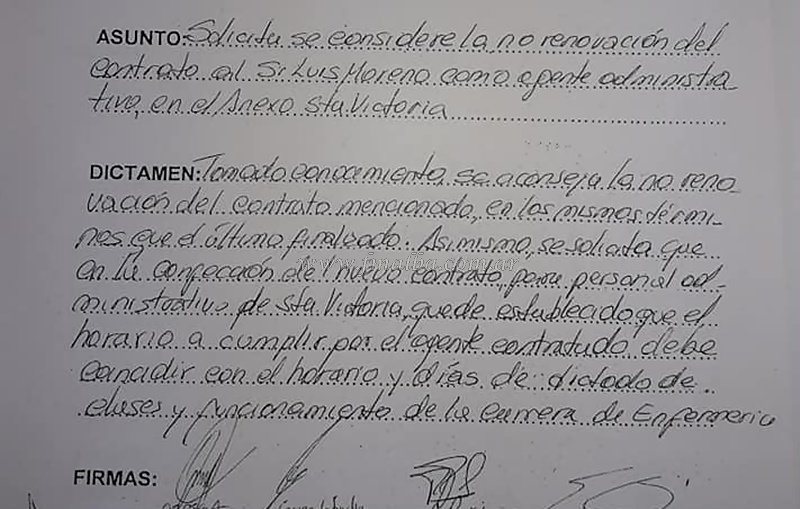 ASUNTO: Solicita se considere la no renovación del
contrato al Sr Luis Moreno como agente administra-
tivo, en el Anexo Sta Victoria
DICTAMEN: Tomado conocimiento, se aconseja la no reno-
vación del contrato mencionado, en los mismos térmi-
nos que el último finalizado. Asimismo, se solicita que
en la confección del nuevo contrato, para personal ad-
ministrativo de Sta Victoria, quede establecido que el
horario a cumplir por el agente contratado debe
concidir con el horario y días de dictado de
clases y funcionamiento de la carrera de Enfermeria
FIRMAS: